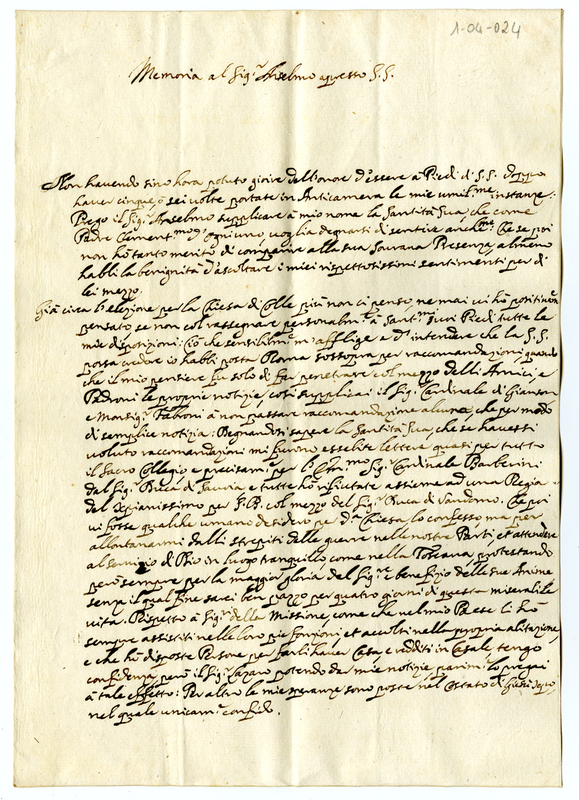 1-04-024
Memoria al Sig.r Anselmo appresso S.S.
Non havendo sino hora potuto gioire dell'onore d'essere a Piedi di S.S. doppo
haver cinque ò sei volte portate in Anticamera le mie umil.me instanze:
Prego il Sig.r Anselmo supplicare à mio nome la Santità Sua, che come
Padre Clement.mo ogni uno voglia degnarsi di sentire anch. Che se poi
non hò tanto merito di comparire alla sua Sovrana Presenza, almeno
habbi la benignità d'ascoltare i miei rispettosissimi sentimenti per di
lei mezzo.
Già circa l'elezione per la Chiesa di Colle più non ci penso, ne mai vi hò
pensato se non col rassegnare personalm.e à Sant.mi suoi Piedi tutte le
mie disposizioni: Ciò che sensibilm.e mi afflige è d'intendere che la S.S.
possa credere io habbi posta Roma sottosopra per raccomandazioni quando
che il mio pensiere fu solo di far penetrare col mezzo delli Amici, e
Padroni le proprie notizie, così supplicai il Sig.r Cardinale di
e Monsig.r Fabroni à non passare raccomandazione alcuna, che per modo
di semplice notizia: Degnandosi sapere la Santità Sua, che se havessi
voluto raccomandazioni mi furono essebite lettere quasi per tutto
il Sacro Collegio e precisam.e per l' e Sig.r Cardinale Barberini
dal Sig.r Duca di e tutte hò rifiutate assieme ad una Regia
del Xpianissimo per col mezzo del Sig.r Duca di Vandomo. Che poi
vi fosse qualche umano desiderio per d.a Chiesa lo confesso, ma per
allontanarmi dalli strepiti delle guerre nelle nostre Parti, et attendere
al servizio di Dio in luogo tranquillo come nella Toscana, protestando
però sempre per la maggior gloria del Sig.re e benefizio delle sue Anime
senza il qual fine sarei ben pazzo per quatro giorni di questa miserabile
vita. Rispetto à Sig.ri della Missione, come che nel mio Paese li hò
sempre assistiti nelle loro pie fonzioni et accolti nella propria abitazione,
e che hò disposte Persone per farli haver Casa, e redditi in Casale, tengo
confidenza però il Sig.r Lazaro potendo dar mie notizie parim.e lo pregai
à tale effetto: Per altro le mie speranze sono poste nel Costato di Giesù
nel quale unicam.e confido.